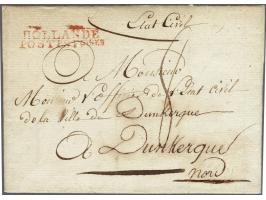 Etat Civil
HOLLANDE
A Monsieur
Monsieur l'officier de l'Etat civil
de la Ville de Dunkerque
A Dunkerque
Nord